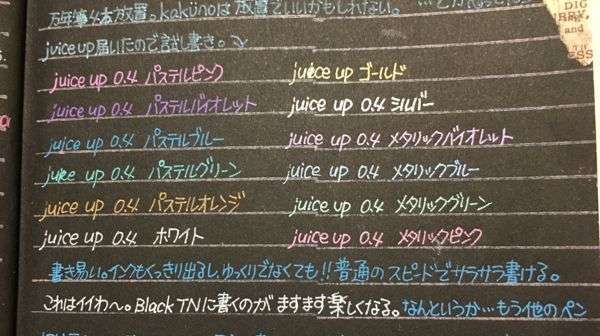 万年筆4本放置。kakünoは放置でいいかもしれない。
juice up届いたので試し書き。
juice up 0.4 パステルピンク
juice up ゴールド
juice up 0.4 パステルバイオレット
juice up 0.4 シルバー
juice up 0.4 パステルブルー
juice up 0.4 メタリックバイオレット
juice up 0.4 パステルグリーン
juice up 0.4 メタリックブルー
juice up 0.4 パステルオレンジ
juice up 0.4 メタリックグリーン
juice up 0.4 ホワイト
juice up 0.4 メタリックピンク
書き易い。インクもくっきり出るし、ゆっくりでなくても!!普通のスピードでサラサラ書ける。
これはイイわ〜。Black TNに書くのがますます楽しくなる。なんというか…もう他のペン
DIG
RRY,
and
ESS